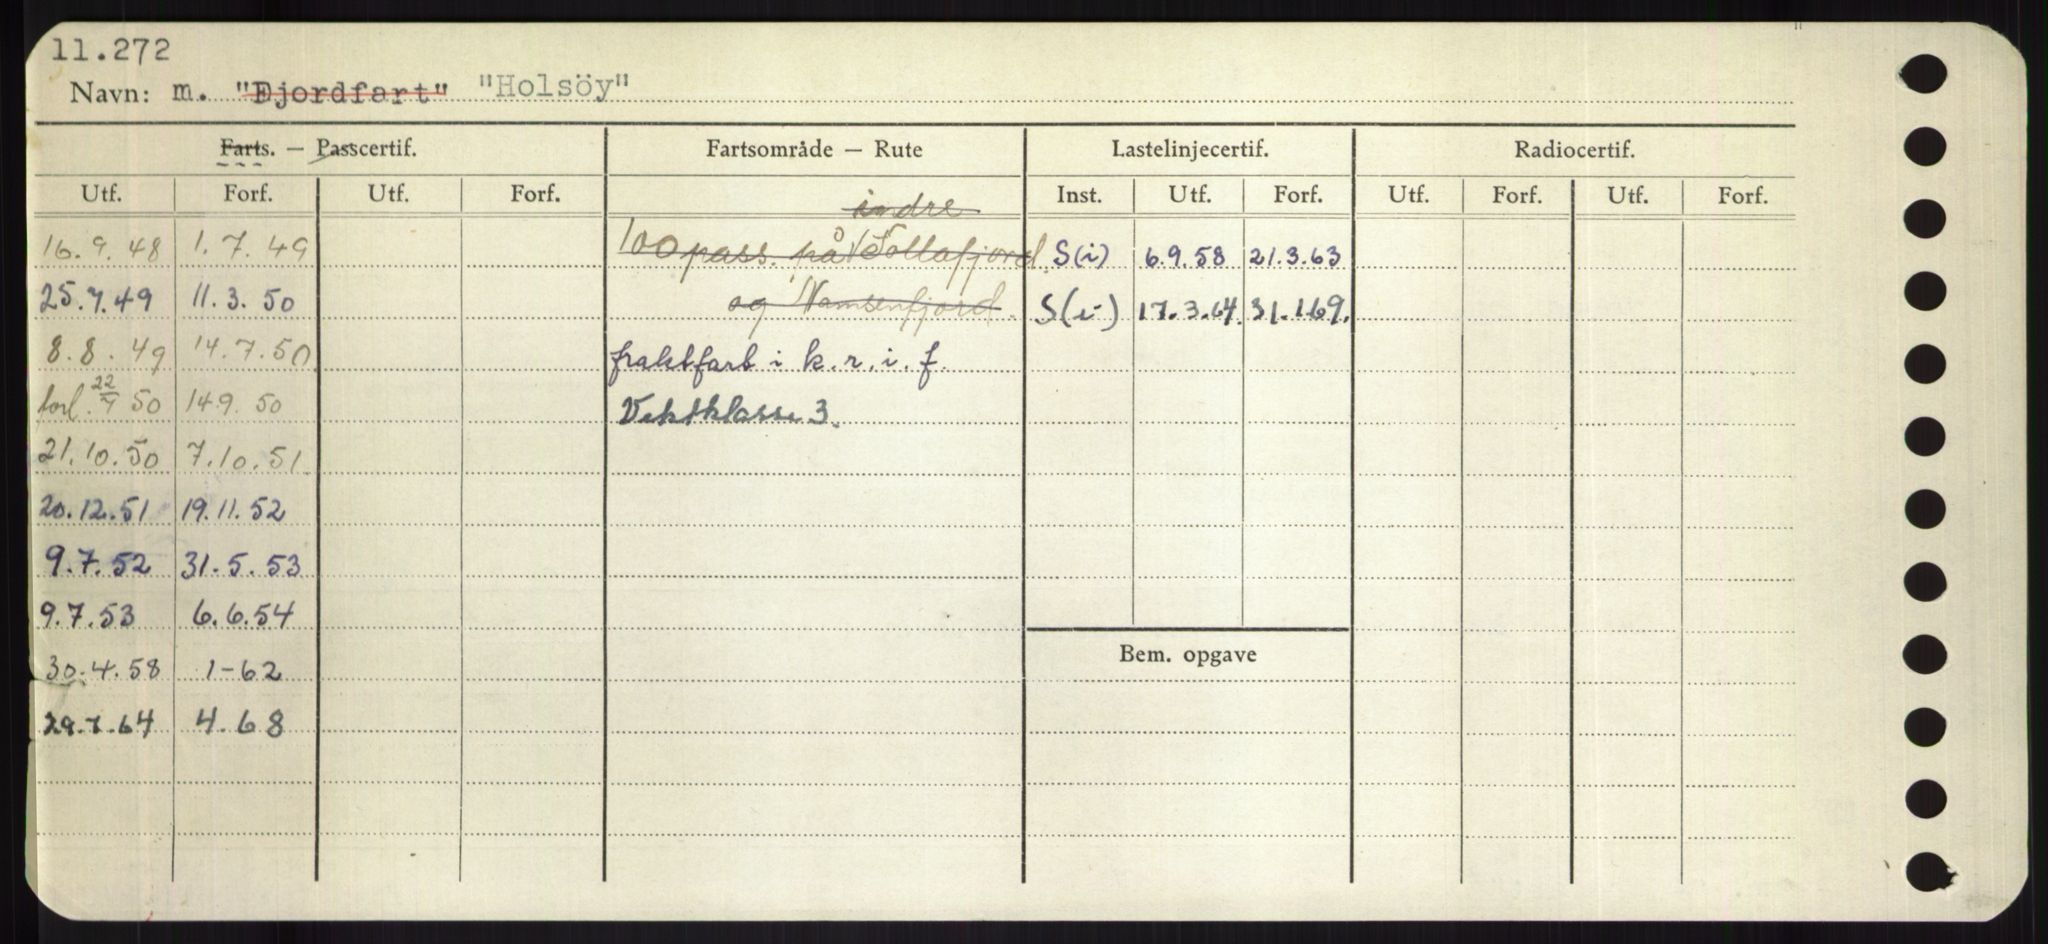 11.272
Navn: m. "Fjordfart" "Holsöy"
Farts. — Passcertif. Fartsområde — Rute Lastelinjecertif. Radiocertif.
Utf. Forf. Utf. Forf. Inst. Utf. Forf. Utf. Forf. Utf. Forf.
indre
16.9.48 1.7.49 100 pass. på Follafjord S(i) 6.9.58 21.3.63
25.7.49 11.3.50 og Namsenfjord. S(i) 17.3.64. 31.1.69.
8.8.49 14.7.50 fraktfart i k.r.i.f.
forl. 22/7 50 14.9.50 Vektklasse 3.
21.10.50 7.10.51
20.12.51 19.11.52
9.7.52 31.5.53
9.7.53 6.6.54
Bem. opgave
30.4.58 1-62
29.7.64 4.68